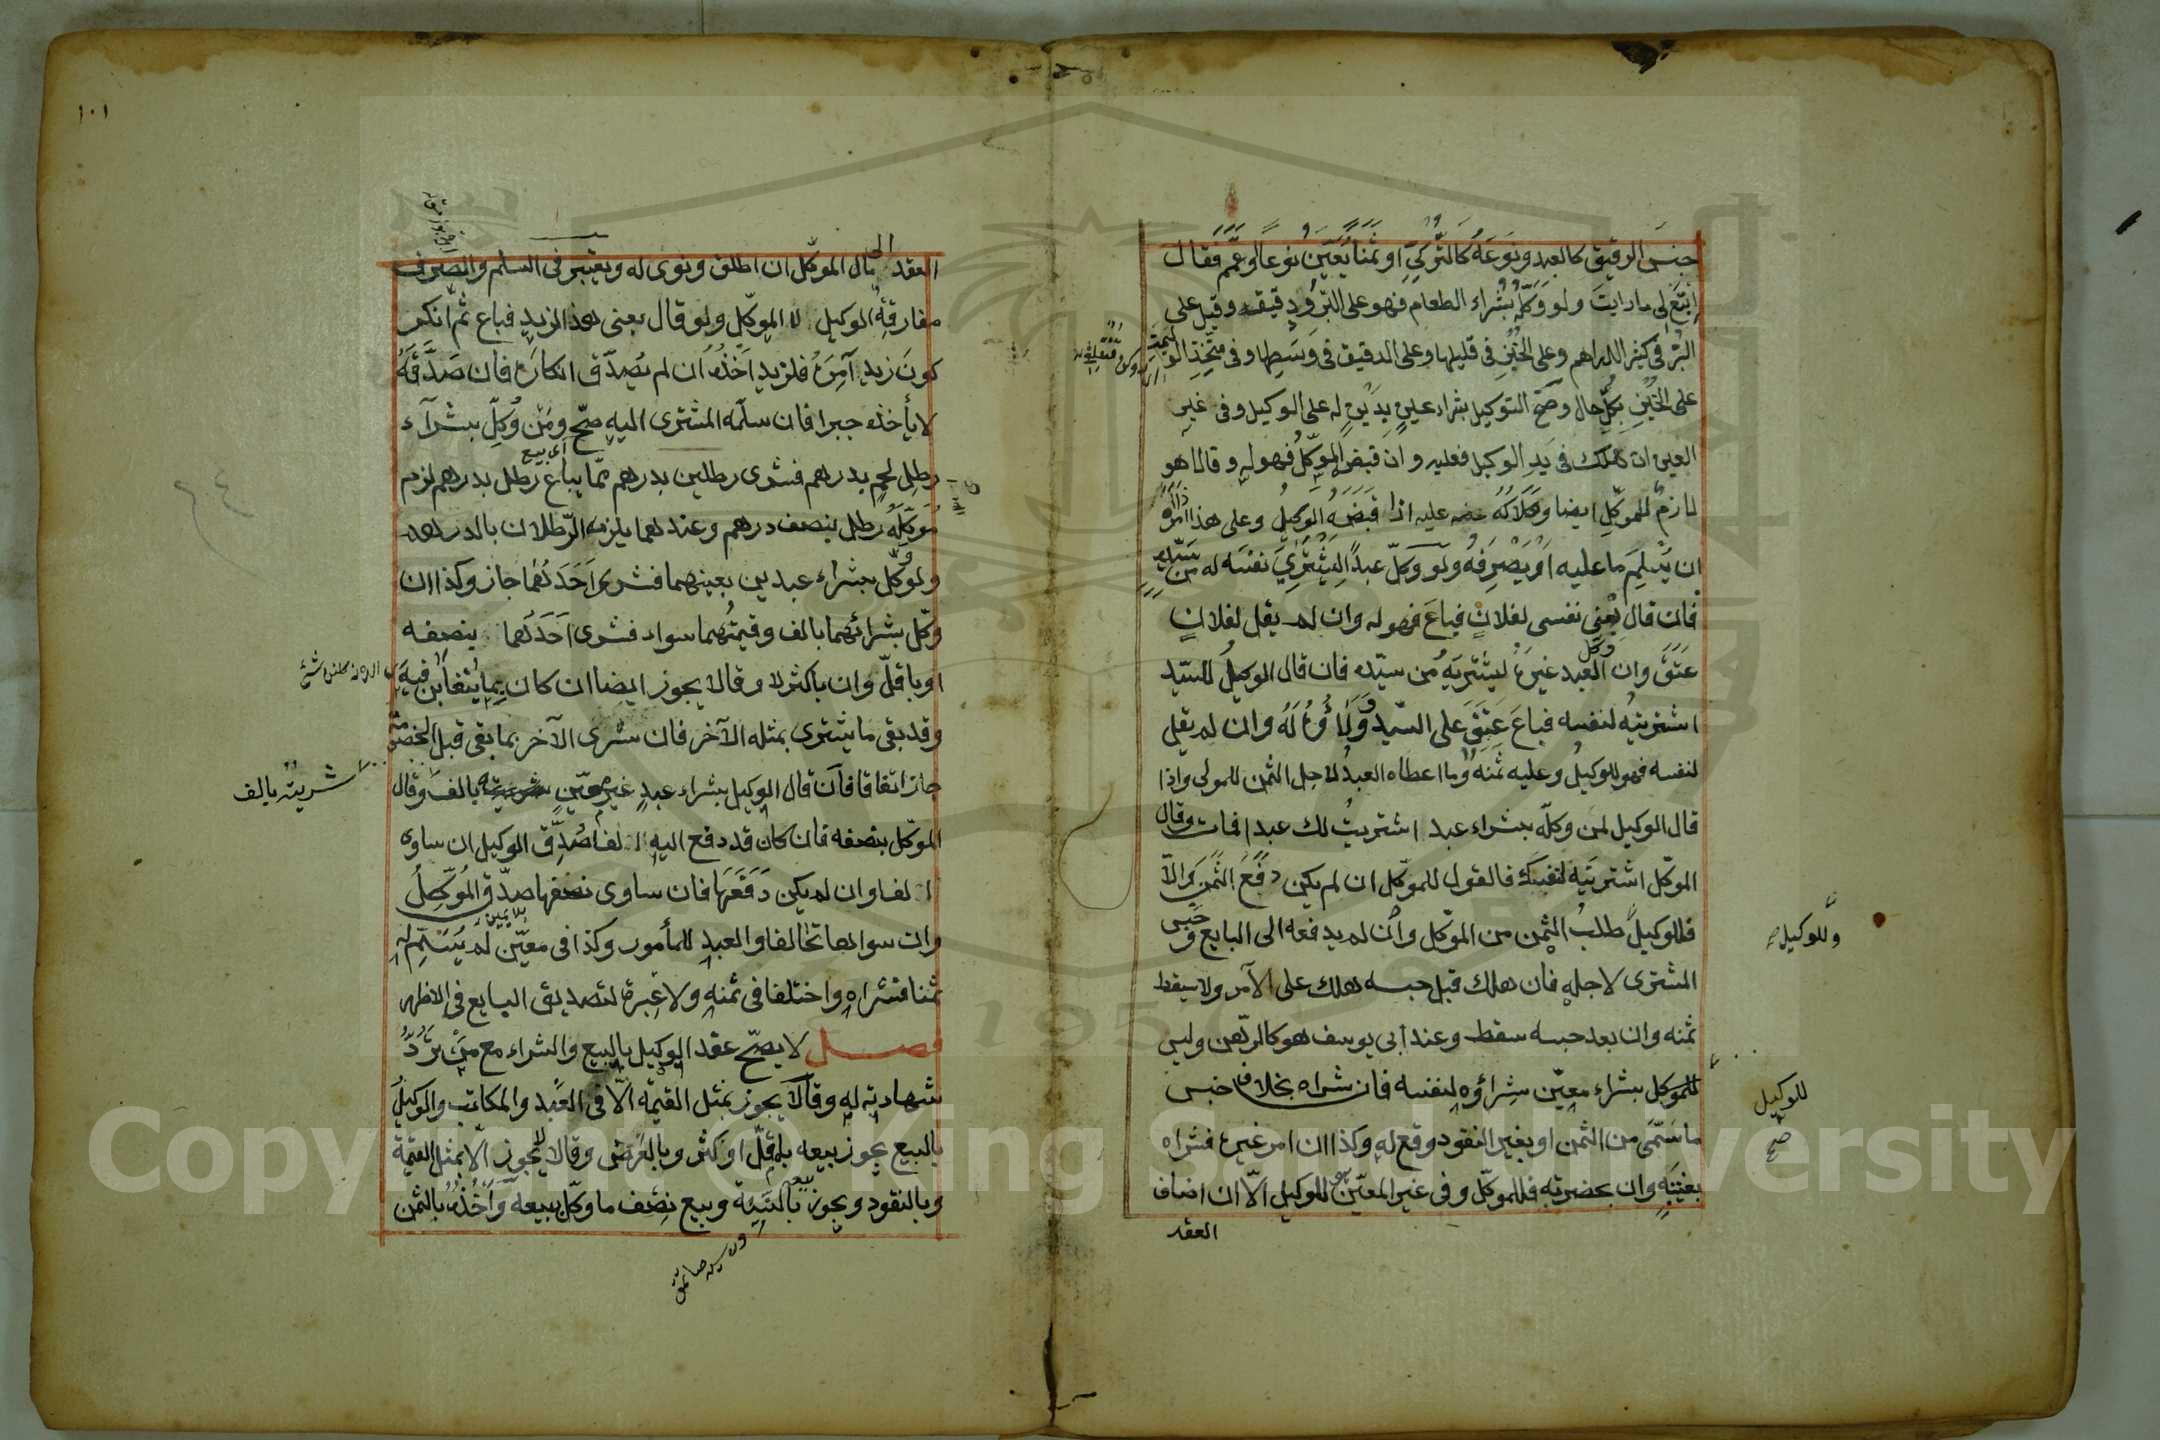 جنس الرقيق كالعبد ونوعه كالتركي او ثمنا يعين نوعا او عمم فقال
ابتع لى ما رايت ولو وكله بشراء الطعام فهو على البر ودقيقه وقيل على
البر فى كثير الدراهم وعلى الخبز فى قليلها وعلى الدقيق فى وسطها وفى متخذ الوليمة
على الخبز بكل حال وصح التوكيل بشراء عين بدين له على الوكيل وفى غير
العين ان هلك فى يد الوكيل فعليه وان قبض الموكل فهو له وقالا هو
لازم للموكل ايضا وهلاكه عليه اذا قبضه الوكيل وعلى هذا اذا امره
ان يسلم ما عليه او يصرفه ولو وكل عبدا ليشترى نفسه له من سيده
فان قال بعنى نفسى لفلان فباع فهو له وان لم يقل لفلان
عتق وان وكل العبد غيره ليشتريه من سيده فان قال الوكيل للسيد
اشتريته لنفسه فباع عتق على السيد وولاؤه له وان لم يقل
لنفسه فهو للوكيل وعليه ثمنه وما اعطاه العبد لاجل الثمن للمولى واذا
قال الوكيل لمن وكله بشراء عبد اشتريت لك عبدا فمات وقال
الموكل اشتريته لنفسك فالقول للموكل ان لم يكن دفع الثمن والا
فللوكيل طلب الثمن من الموكل وان لم يدفعه الى البايع وحبس
المشترى لاجله فان هلك قبل حبسه هلك على الآمر ولا يسقط
ثمنه وان بعد حبسه سقط وعند ابى يوسف هو كالرهن وليس
للموكل بشراء معين شراؤه لنفسه فان شراه بخلاف جنس
ما سمى من الثمن او بغير النقود وقع له وكذا ان امر غيره فشراه
بغيبته وان بحضرته فللموكل وفى غير المعين هو للوكيل الا ان اضاف
العقد
وللوكيل صح
للوكيل
صح
١٠١
العقد الى مال الموكل ان اطلق ونوى له ويعتبر فى السلم والصرف
مفارقة الوكيل لا الموكل ولو قال بعنى هذا لزيد فباع ثم انكر
كون زيد آمره فلزيد اخذه ان لم يصدق انكاره فان صدقه
لا يأخذه جبرا فان سلمه المشترى اليه صح ومن وكل بشرآء
اى بيع
رطل لحم بدرهم فشرى رطلين بدرهم مما يباع رطل بدرهم لزم
موكله رطل بنصف درهم وعندهما يلزمه الرطلان بالدرهم
ولو وكل بشراء عبدين بعينهما فشرى احدهما جاز وكذا ان
وكل بشرائهما بالف وقيمتهما سواء فشرى احدهما بنصفه
او باقل وان باكثر لا وقالا يجوز ايضا ان كان بما يتغابن فيه
وقد بقى ما يشترى بمثله الآخر فان شرى الآخر بما بقى قبل الخصومة
جاز اتفاقا فان قال الوكيل بشراء عبد غير معين شريته بالف وقال
شريته بالف
الموكل بنصفه فان كان قد دفع اليه الالف صدق الوكيل ان ساوه
الالف وان لم يكن دفعها فان ساوى نصفها صدق الموكل
بلا يمين
وان سواها تحالفا والعبد للمأمور وكذا فى معين لم يسم له
ثمنا فشراه واختلفا فى ثمنه ولا عبرة لتصديق البايع فى الاظهر
فصل لا يصح عقد الوكيل بالبيع والشراء مع من ترد
شهادته له وقالا يجوز بمثل القيمة الا فى العبد والمكاتب والوكيل
بالبيع يجوز بيعه بما قل او كثر وبالعرض وقالا لا يجوز الا بمثل القيمة
وبالنقود ويجوز بيعه بالنسيئة وبيع نصف ما وكل ببيعه واخذه بالثمن
1957
Copyright © King Saud University